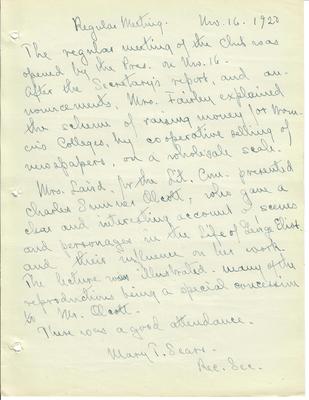 Regular Meeting. Nov. 16. 1920
The regular meeting of the Club was
opened by the Pres. on Nov. 16.
After the Secretary's report, and an-
nouncements, Mrs. Fairley explained
the scheme of raising money for Wom-
en's Colleges, by co-operative selling of
newspapers, on a wholesale scale.
Mrs. Laird, for the Lit. Com. presented
Charles Sumner Olcott, who gave a
clear and interesting account of scenes
and personages in the Life of George Eliot,
and their influence on her work.
The lecture was illustrated. many of the
reproductions being a special concession
to Mr. Olcott.
There was a good attendance.
Mary T. Sears.
Rec. Sec.